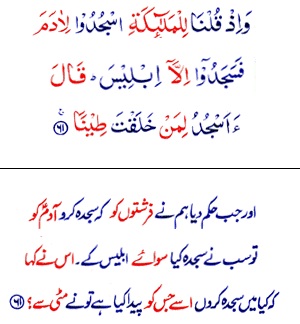 وَاِذْ قُلْنَا لِلْمَلٰٓئِكَةِ اسْجُدُوْا لِاٰدَمَ
فَسَجَدُوْٓا اِلَّآ اِبْلِيْسَ ؕ قَالَ
ءَاَسْجُدُ لِمَنْ خَلَقْتَ طِيْنًا ۚ ﴿۶۱﴾
اور جب حکم دیا ہم نے فرشتوں کو کہ سجدہ کرو آدمؑ کو
تو سب نے سجدہ کیا سوائے ابلیس کے۔ اس نے کہا
کہ کیا میں سجدہ کروں اسے جس کو پیدا کیا ہے تو نے مٹی سے؟ ﴿۶۱﴾